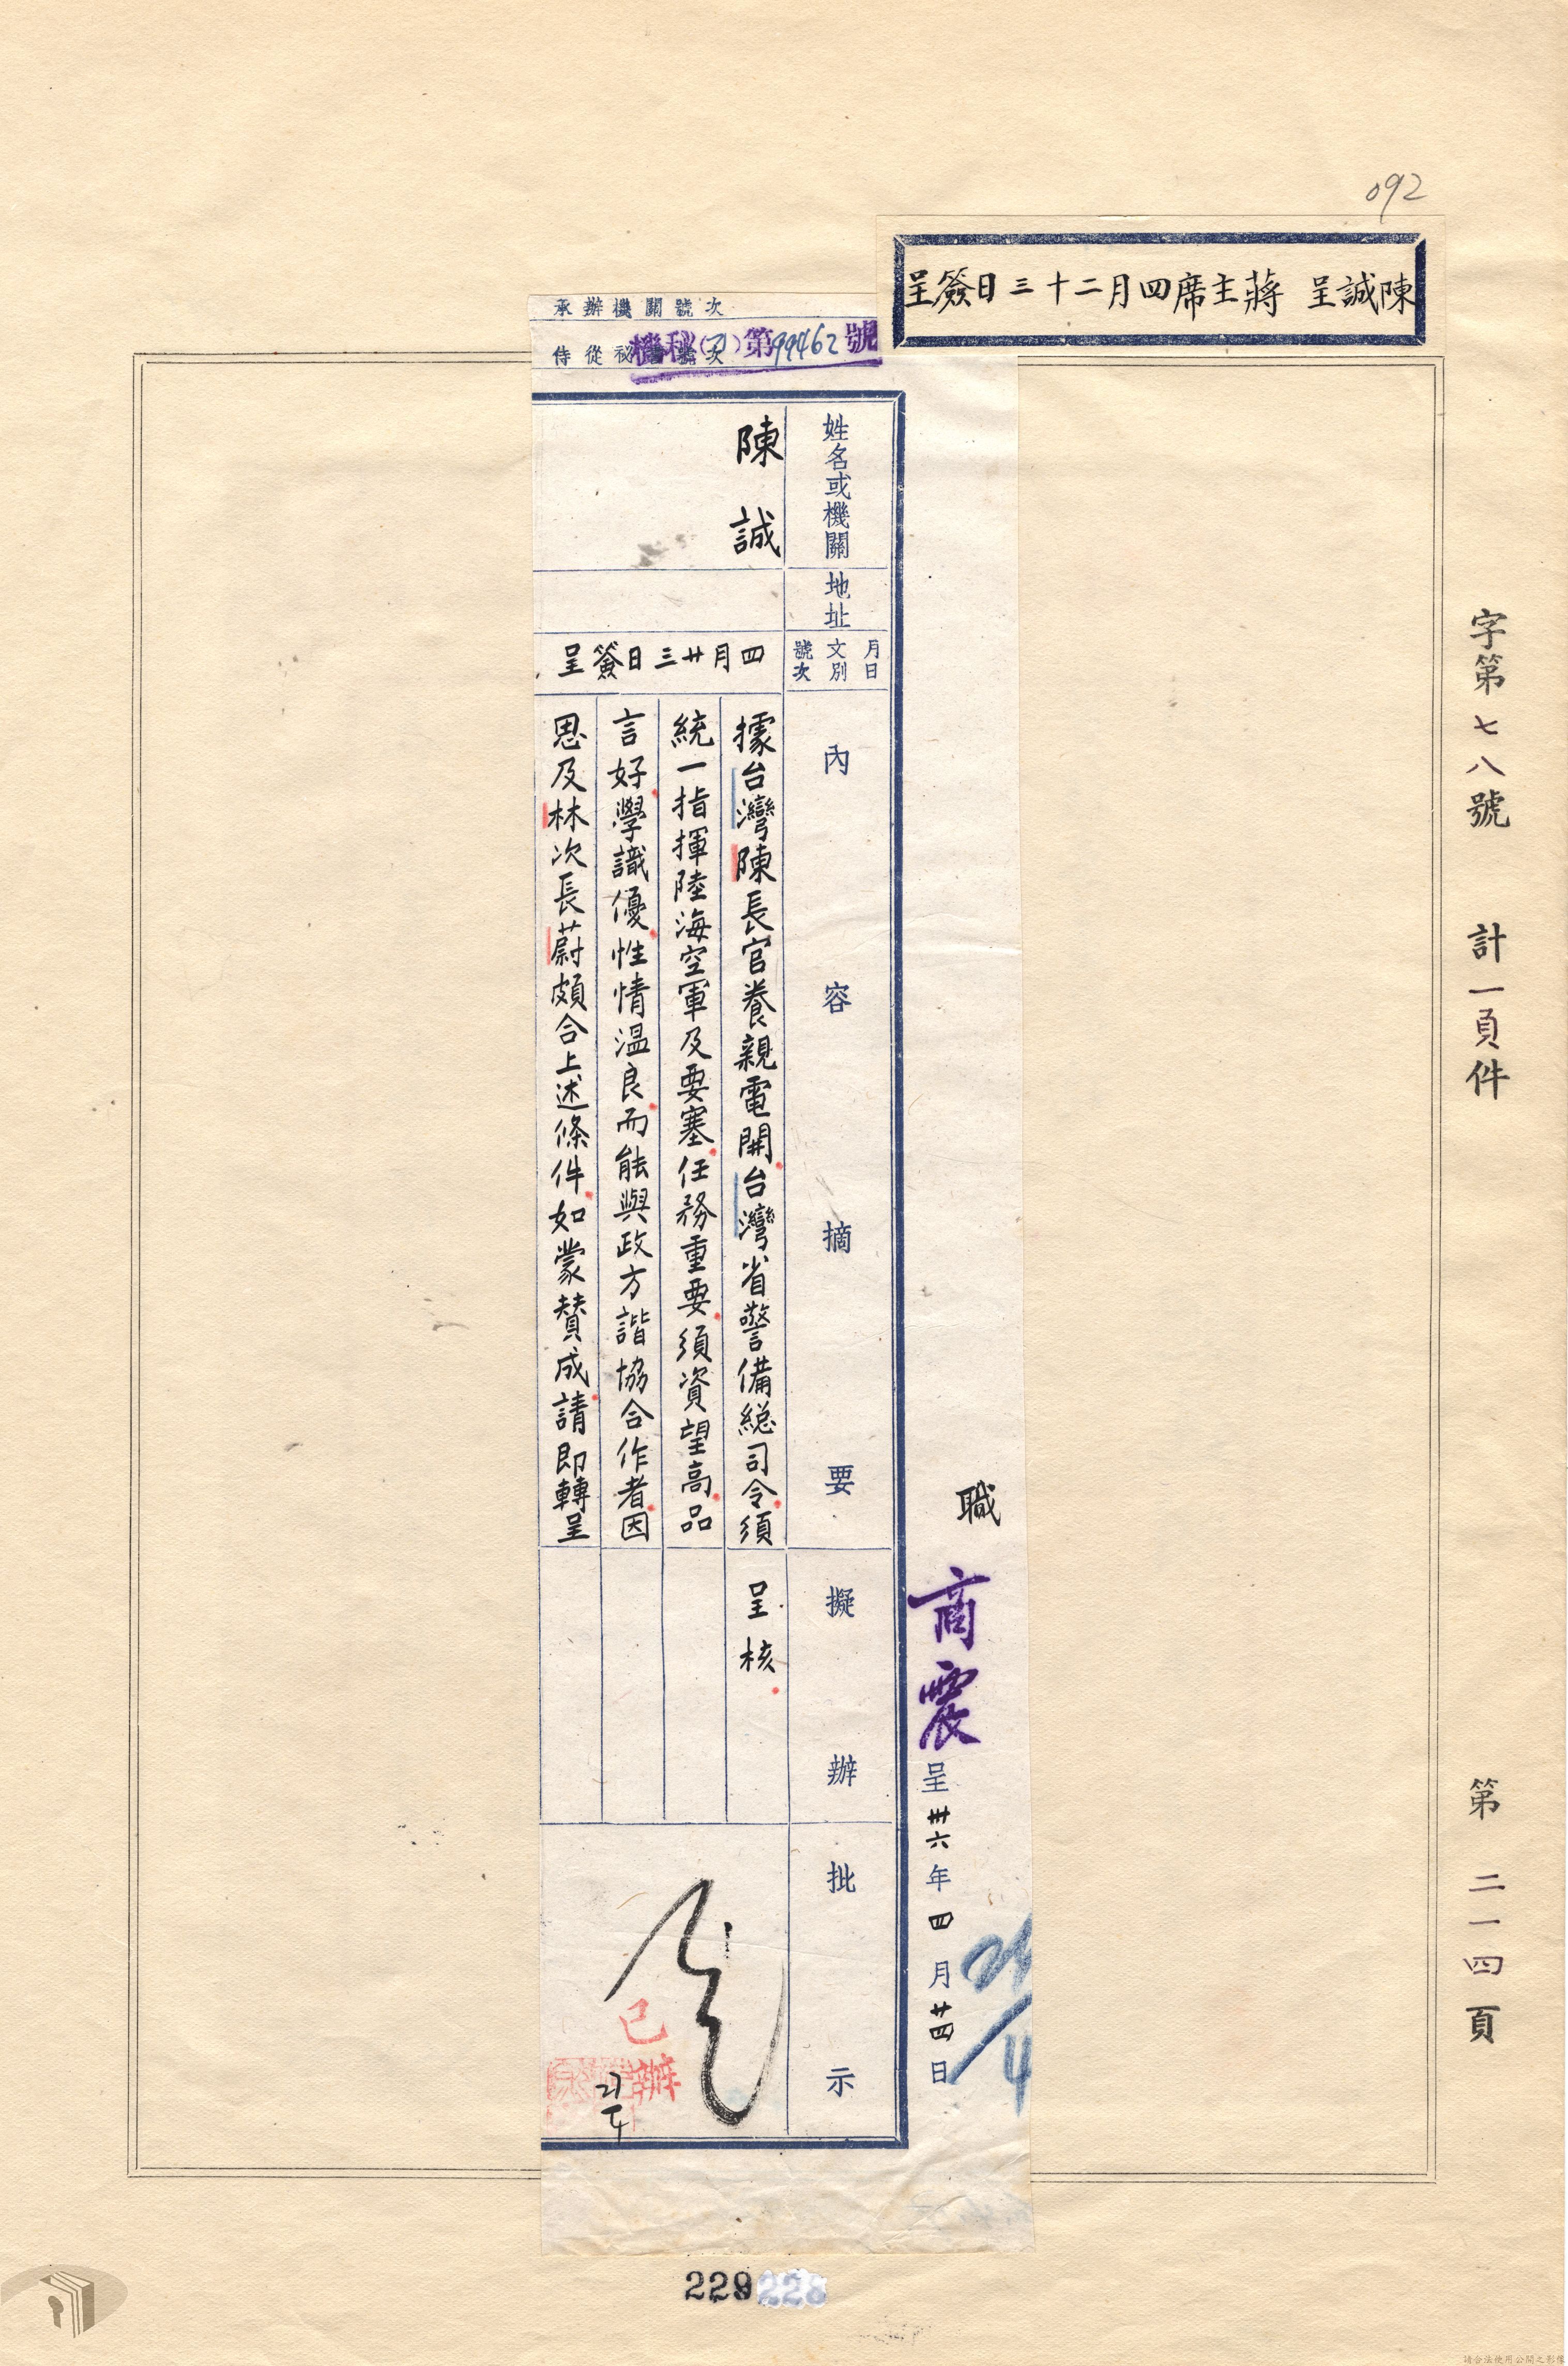 092
陳誠呈 蔣主席四月二十三日簽呈
字第七八號 計一頁件 第二一四頁
承辦機關號次
侍從祕書號次
機秘(乃)第99462號
職 商震 呈 卅六年四月廿四日
24/4
姓名或機關
地址
月日
文別
號次
內容摘要
擬辦
批示
陳誠
四月廿三日簽呈
據台灣陳長官養親電開台灣省警備總司令須
統一指揮陸海空軍及要塞任務重要須資望高品
言好學識優性情溫良而能與政方諧協合作者因
思及林次長蔚頗合上述條件如蒙贊成請即轉呈
呈核
已辦
229
228
請合法使用公開之影像